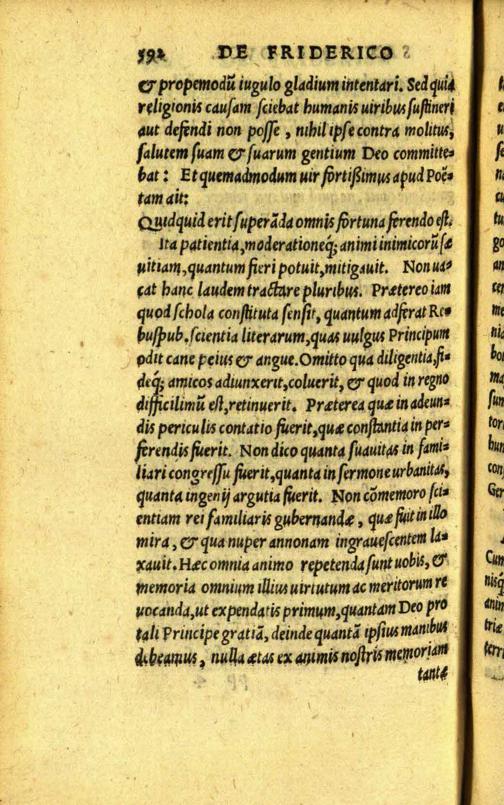 592 DE FRIDERICO
& propemodū iugulo gladium intentari. Sed quia
religionis causam sciebat humanis uiribus sustineri
aut defendi non posse, nihil ipse contra molitus,
salutem suam & suarum gentium Deo committe=
bat: Et quemadmodum uir fortißimus apud Poë=
tam ait:
Quidquid erit superāda omnis fortuna ferendo est.
Ita patientia, moderationeq; animi inimicorū sæ
uitiam, quantum fieri potuit, mitigauit. Non ua=
cat hanc laudem tractare pluribus. Prætereo iam
quod schola constituta sensit, quantum adferat Re=
buspub. scientia literarum, quas uulgus Principum
odit cane peius & angue. Omitto qua diligentia, fi=
deq; amicos adiunxerit, coluerit, & quod in regno
difficilimū est, retinuerit. Præterea quæ in adeun=
dis periculis contatio fuerit, quæ constantia in per=
ferendis fuerit. Non dico quanta suauitas in fami=
liari congressu fuerit, quanta in sermone urbanitas,
quanta ingenij argutia fuerit. Non cōmemoro sci=
entiam rei familiaris gubernandæ, quæ fuit in illo
mira, & qua nuper annonam ingrauescentem la=
xauit. Hæc omnia animo repetenda sunt uobis, &
memoria omnium illius uirtutum ac meritorum re
uocanda, ut expendatis primum, quantam Deo pro
tali Principe gratiā, deinde quantā ipsius manibus
debeamus, nulla ætas ex animis nostris memoriam
tantæ